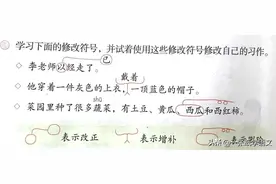 学习下面的修改符号,并试着使用这些修改符号修改自己的习作。
已
◇ 李老师以经走了。
戴着
◇ 他穿着一件灰色的上衣,一顶蓝色的帽子。
shū
◇ 菜园里种了很多蔬菜,有土豆、黄瓜、西瓜和西红柿。
表示改正 表示增补 表示删除